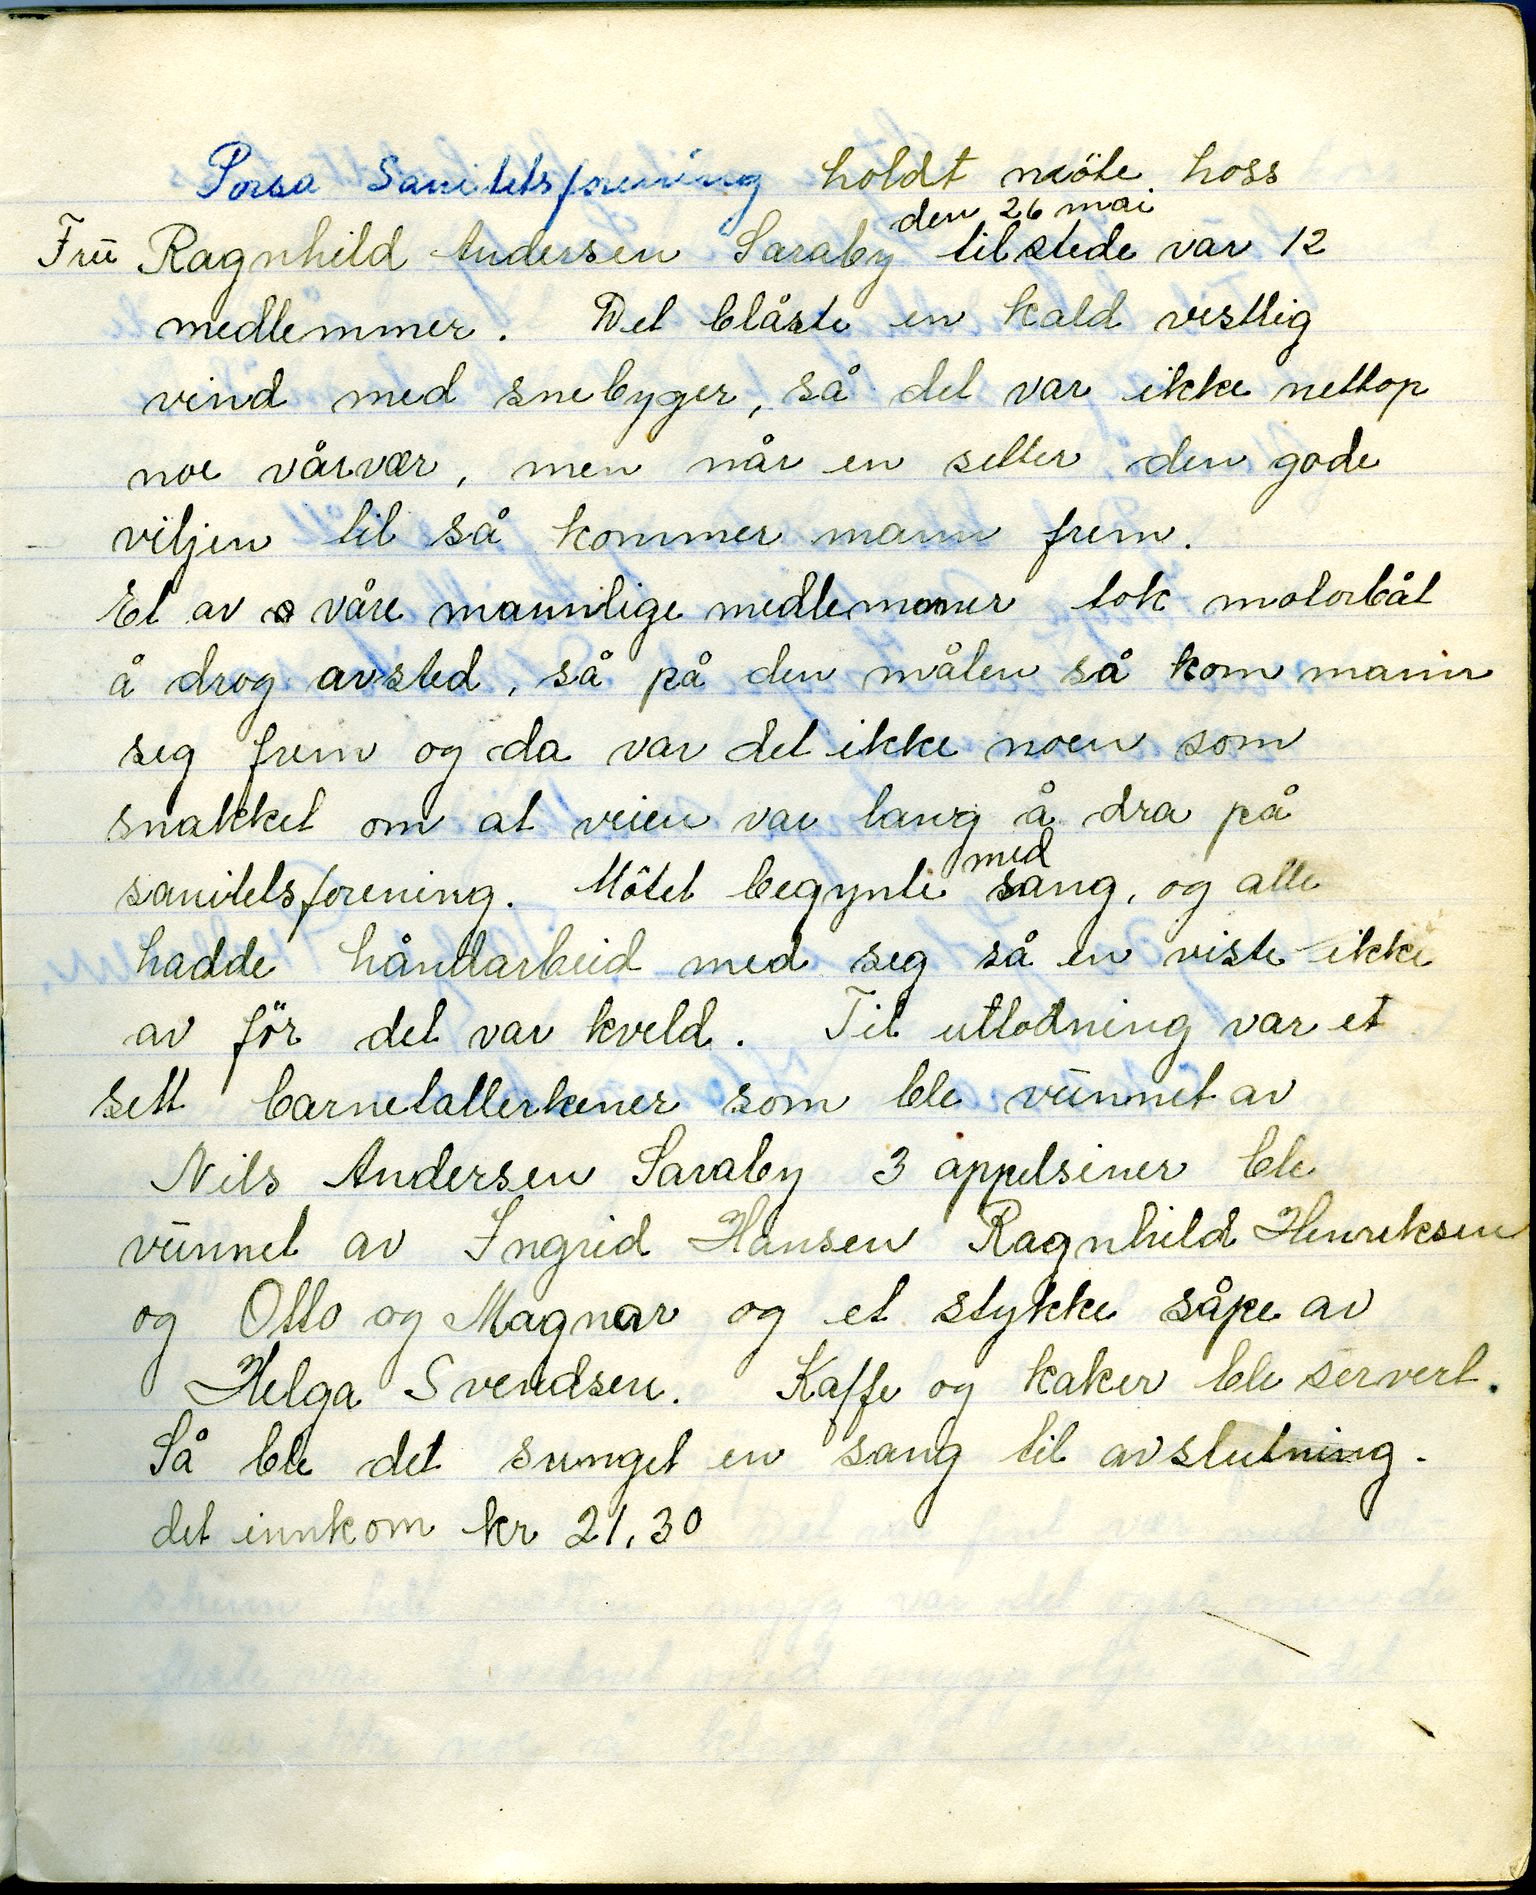 Porsa Sanitetsforening holdt möte hoss
den 26 mai
Frü Ragnhild Andersen Saraby tilstede var 12
medlemmer. Det blåste en kald vestlig
vind med snebyger, så det var ikke nettop
noe vårvær, men når en setter den gode
viljen til så kommer mann frem.
Et av våre mannlige medlemmer tok motorbåt
å drog avsted, så på den måten så kom mann
seg frem og da var det ikke noen som
snakket om at veien var lang å dra på
sanitetsforening. Mötet begynte med sang, og alle
hadde håndarbeid med seg så en viste ikke
av för det var kveld. Til utlodning var et
sett barnetallerkener som ble vünnet av
Nils Andersen Saraby 3 appelsiner ble
vünnet av Ingrid Hansen Ragnhild Henriksen
og Otto og Magnar og et stykke såpe av
Helga Svendsen. Kaffe og kaker ble servert.
Så ble det sunget en sang til avslutning.
det innkom kr 21,30